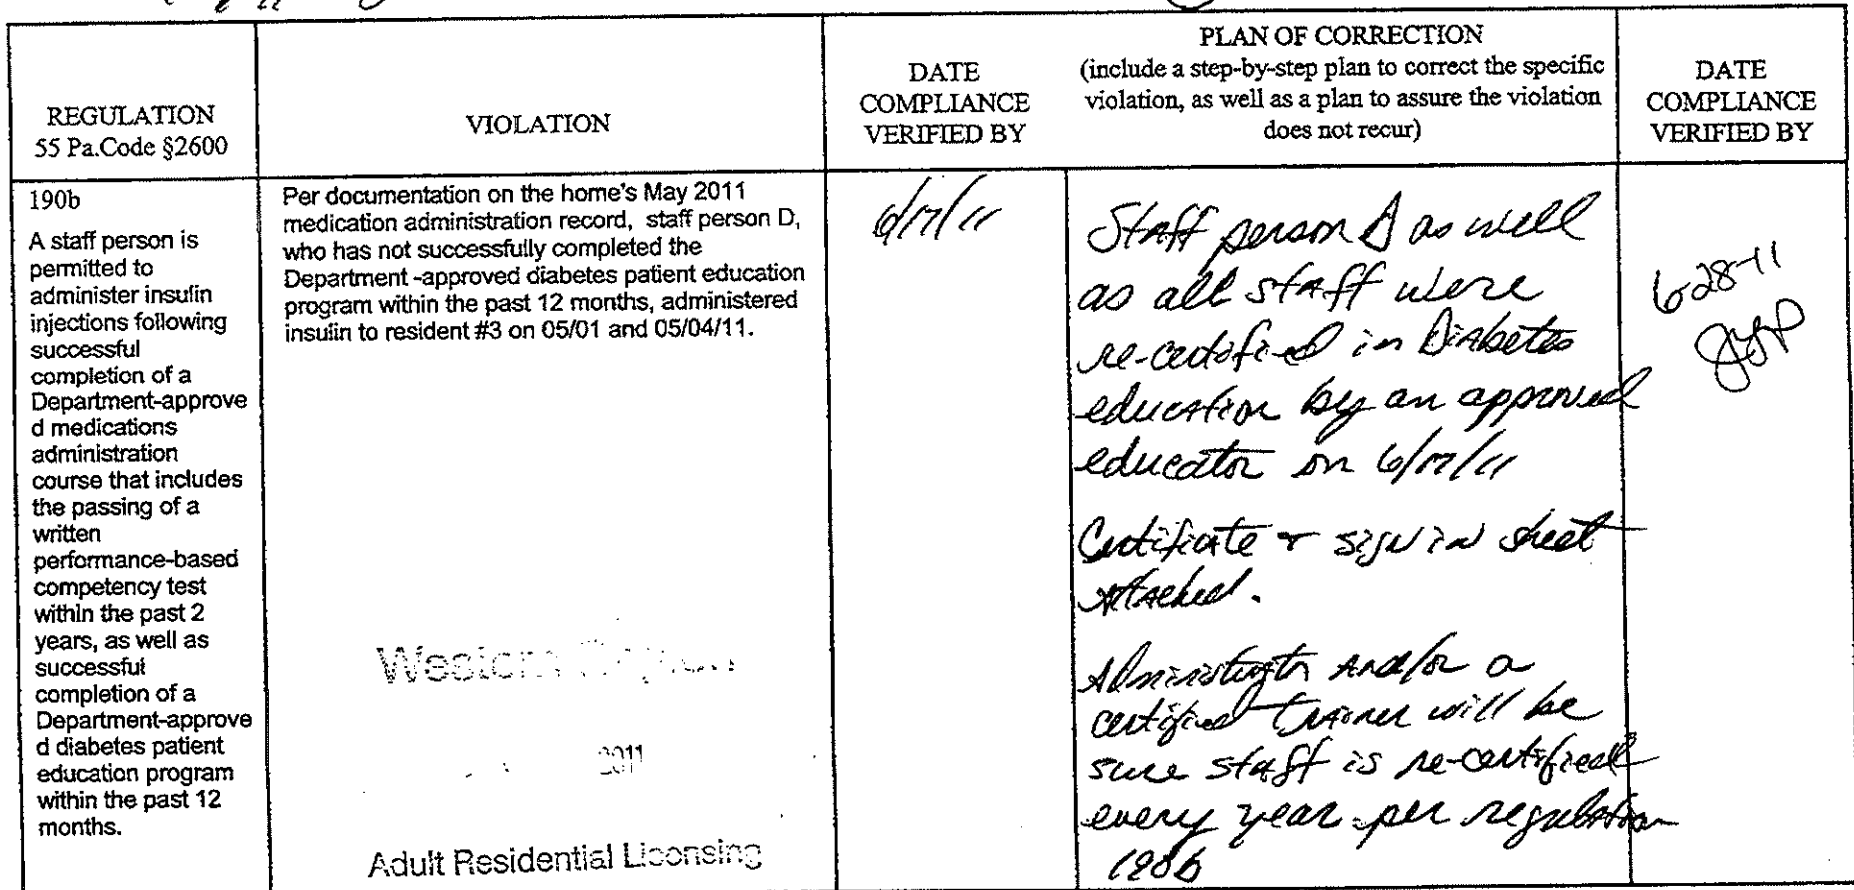 REGULATION
55 Pa.Code §2600
VIOLATION
DATE
COMPLIANCE
VERIFIED BY
PLAN OF CORRECTION
(include a step-by-step plan to correct the specific
violation, as well as a plan to assure the violation
does not recur)
DATE
COMPLIANCE
VERIFIED BY
190b
A staff person is
permitted to
administer insulin
injections following
successful
completion of a
Department-approve
d medications
administration
course that includes
the passing of a
written
performance-based
competency test
within the past 2
years, as well as
successful
completion of a
Department-approve
d diabetes patient
education program
within the past 12
months.
Per documentation on the home's May 2011
medication administration record, staff person D,
who has not successfully completed the
Department -approved diabetes patient education
program within the past 12 months, administered
insulin to resident #3 on 05/01 and 05/04/11.
Western Region
2011
Adult Residential Licensing
6/17/11
Staff person D as well
as all staff were
re-certified in Diabetes
education by an approved
educator on 6/17/11
Certificate + sign in sheet
attached.
Administrator and/or a
certified trainer will be
sure staff is re-certified
every year per regulation
190b
6-28-11